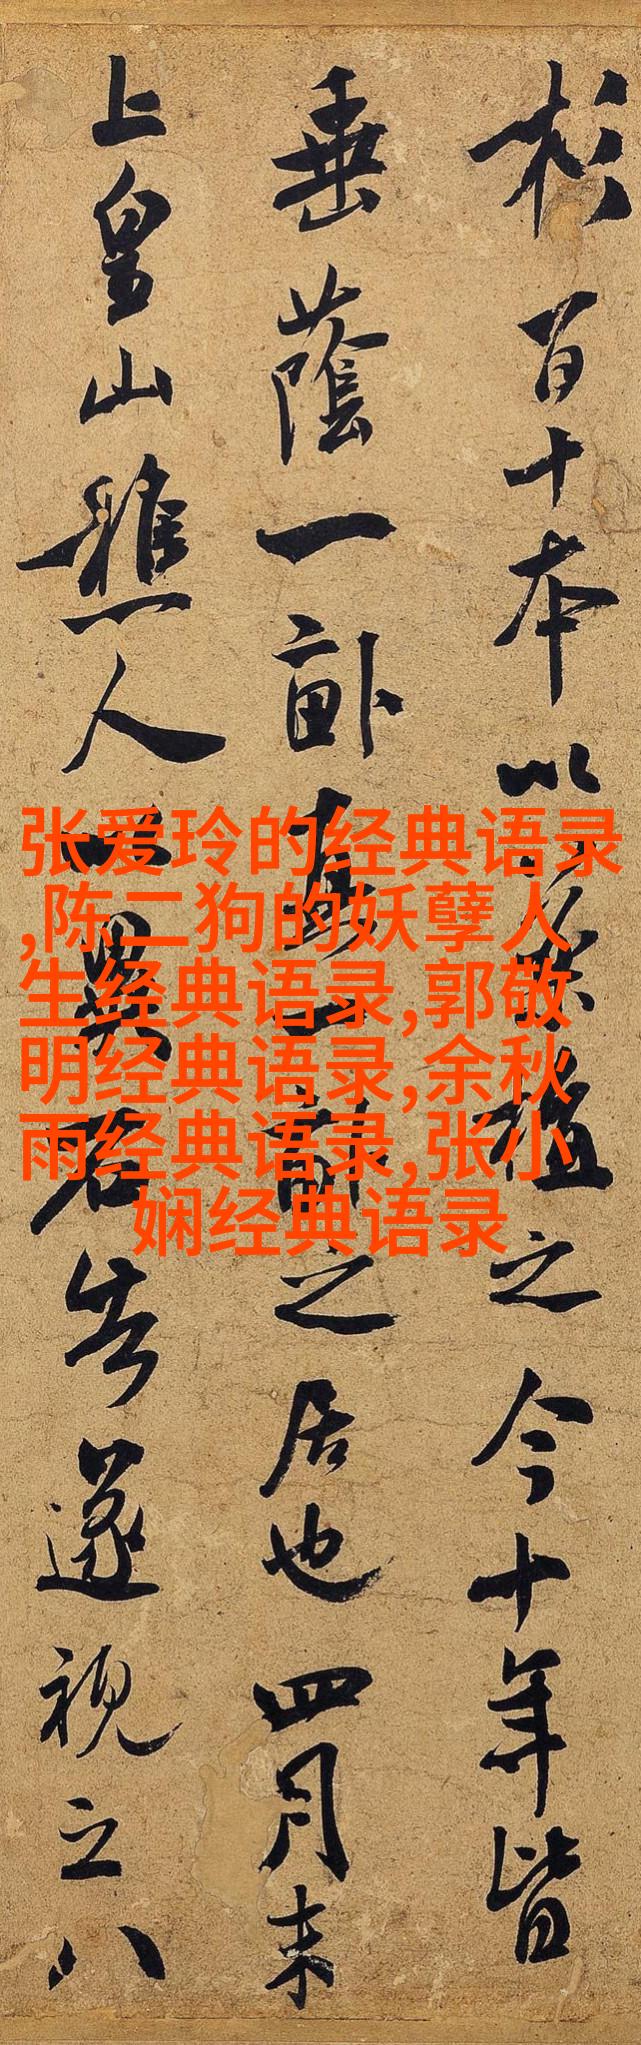 杉百十本以植之今十年皆
垂蔭一畝真之居也四月末
上皇山樵人以異石告遂視之八
张爱玲的经典语录
,陈二狗的妖孽人
生经典语录,郭敬
明经典语录,余秋
雨经典语录,张小
娴经典语录